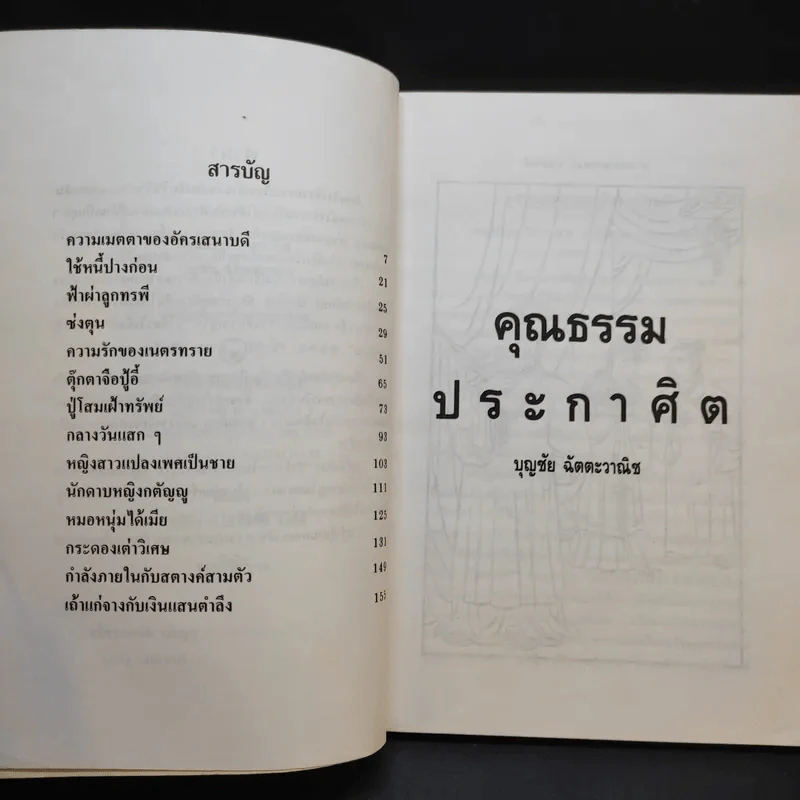 สารบัญ
ความเมตตาของอัครเสนาบดี 7
ใช้หนี้ปางก่อน 21
ฟ้าผ่าลูกทรพี 25
ซ่งตุน 29
ความรักของเนตรทราย 51
ตุ๊กตาจือปู้อี้ 65
ปู่โสมเฝ้าทรัพย์ 73
กลางวันแสก ๆ 93
หญิงสาวแปลงเพศเป็นชาย 103
นักดาบหญิงกตัญญู 111
หมอหนุ่มได้เมีย 125
กระดองเต่าวิเศษ 131
กำลังภายในกับสตางค์สามตัว 149
เถ้าแก่จางกับเงินแสนตำลึง 155
คุณธรรม
ประกาศิต
บุญชัย ฉัตตะวาณิช